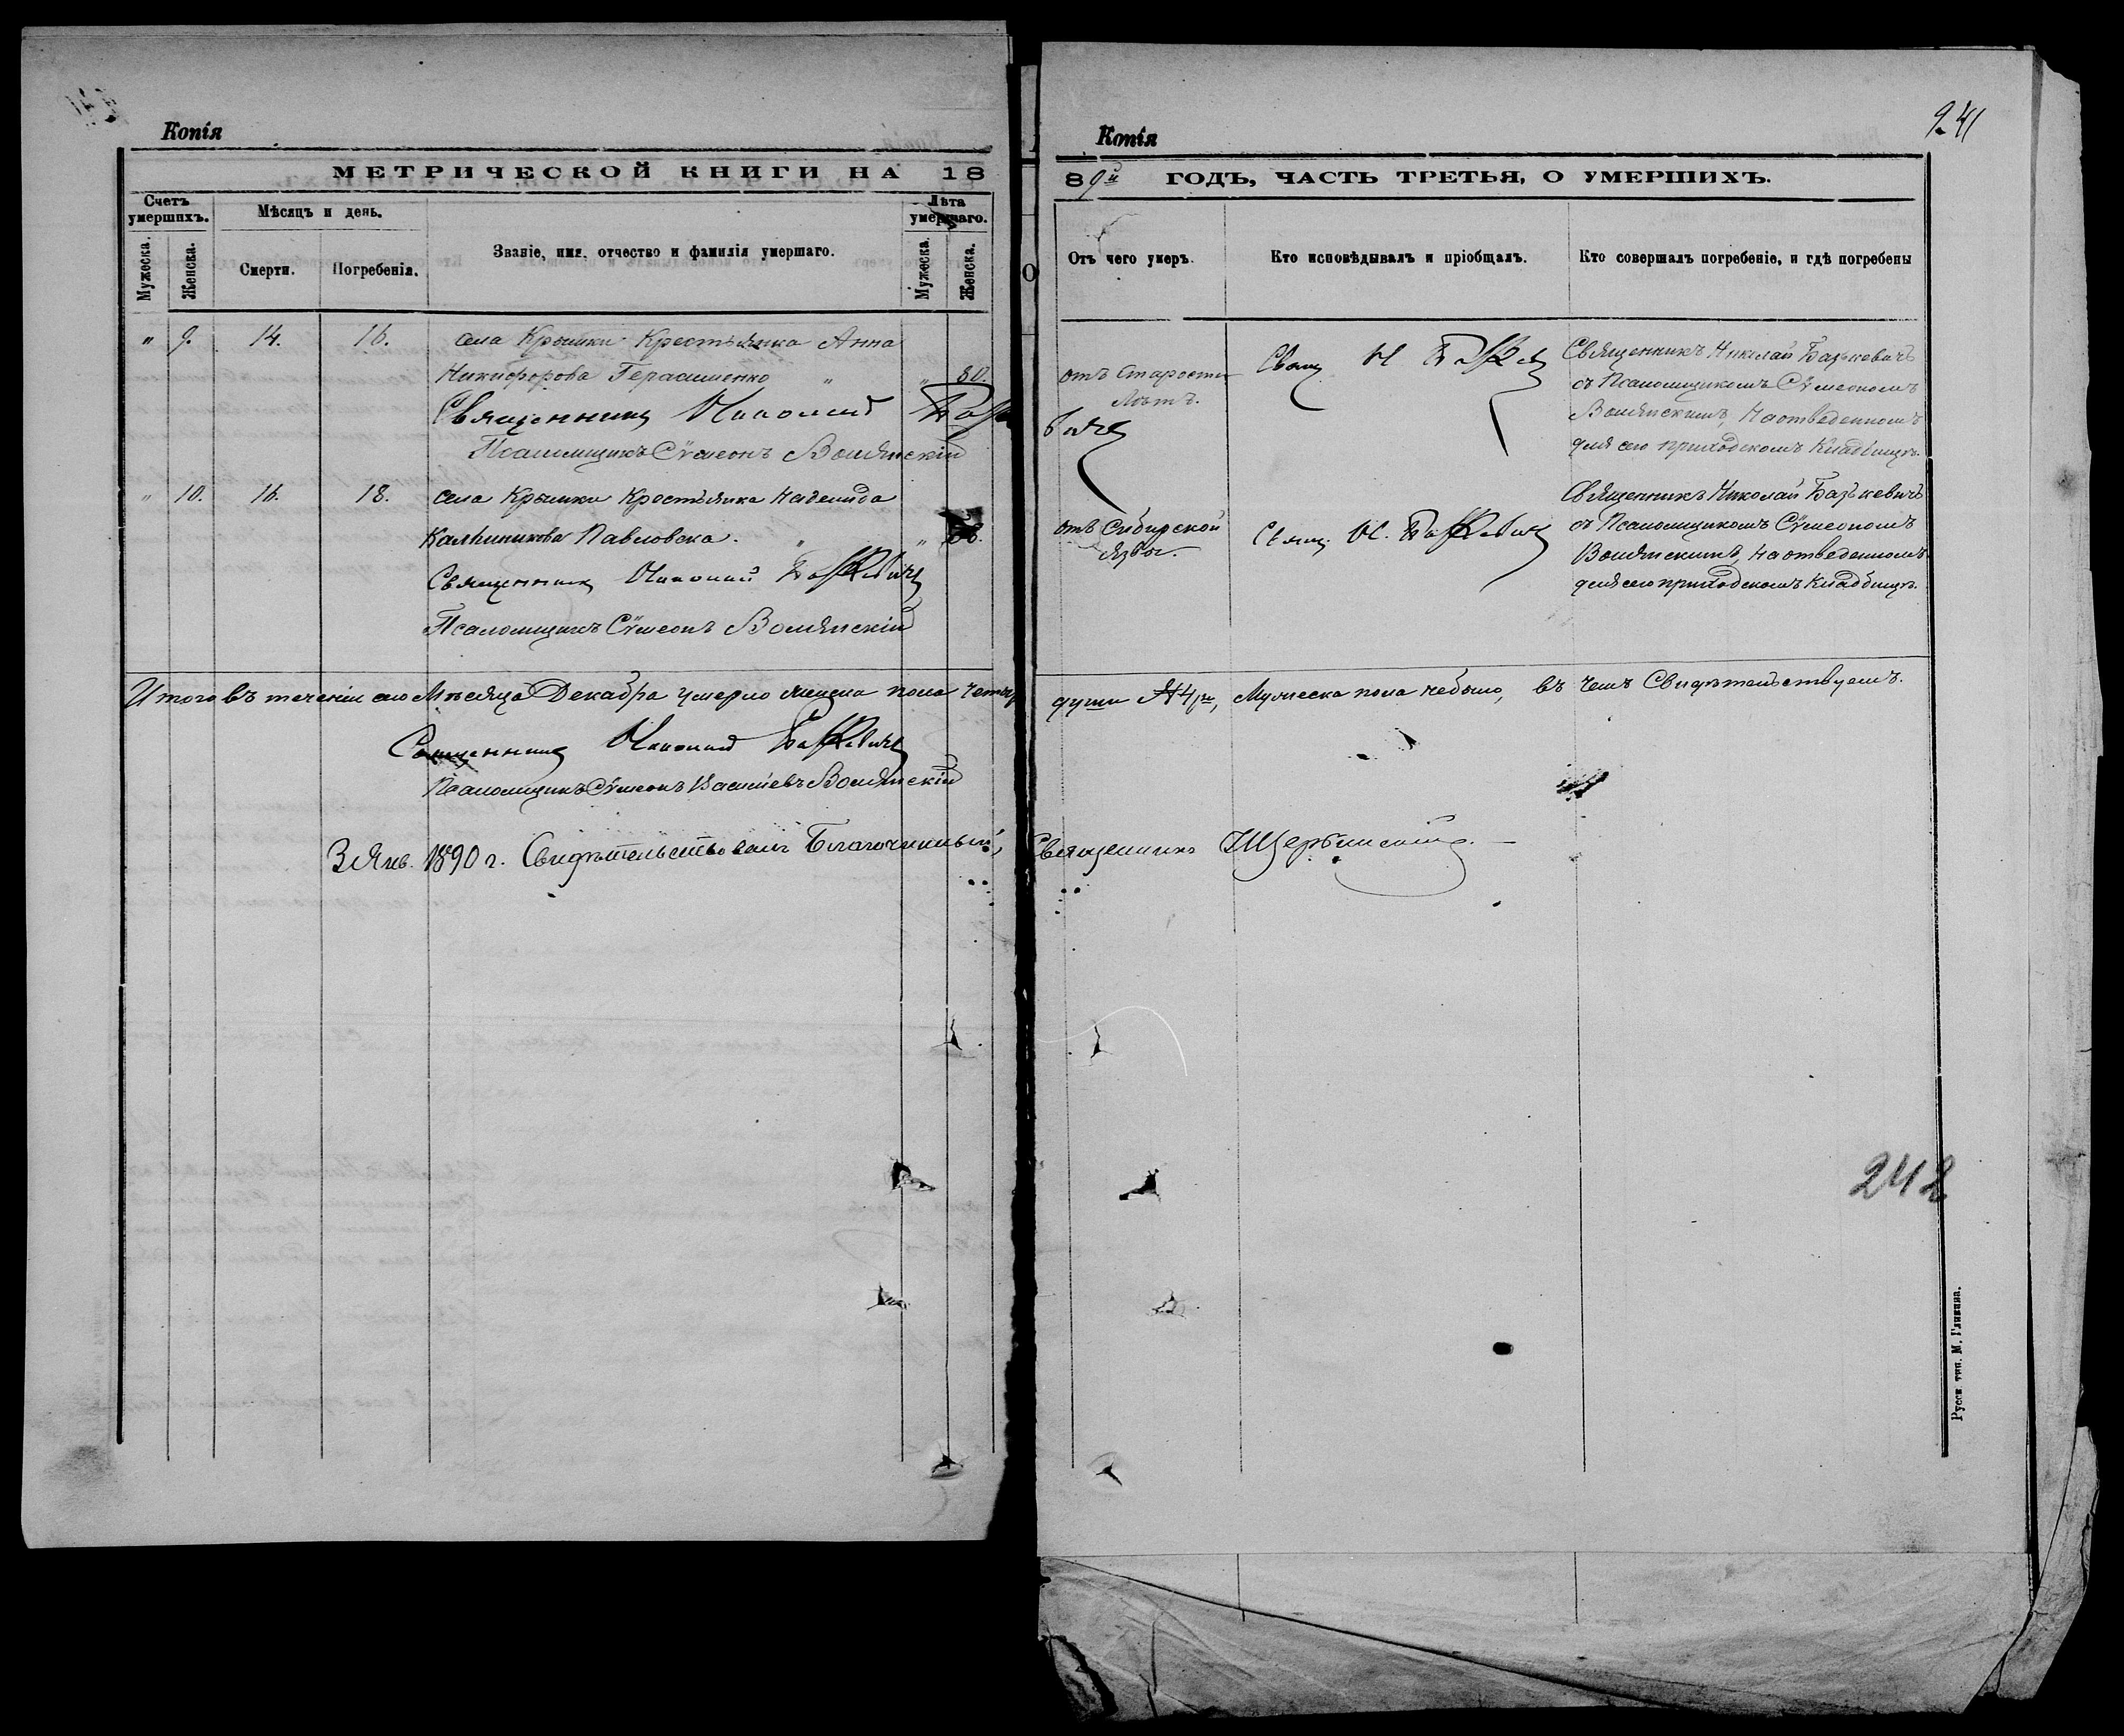 Копія
МЕТРИЧЕСКОЙ КНИГИ НА 18
Счетъ умершихъ.
Мѣсяцъ и день.
Званіе, имя, отчество и фамилія умершаго.
Лѣта умершаго.
Мужеска.
Женска.
Смерти.
Погребенія.
Мужеска.
Женска.
" 9. 14. 16. села Крымки Крестьянка Анна
Никифорова Герасименко " " 80.
Священникъ Николай
Псаломщикъ Сѵмеонъ Волянскій
" 10. 16. 18. села Крымки Крестьянка Надежда
Павловска. "
Священникъ Николай Базькевичъ
Псаломщикъ Сѵмеонъ Волянскій
Итого въ теченіи сего Мѣсяца Декабра умерло женска пола четыре
Священникъ Николай Базькевичъ
Псаломщикъ Сѵмеонъ Волянскій
3 Янв. 1890 г. Свидѣтельствовалъ Благочинный,
Копія
241
89й ГОДЪ, ЧАСТЬ ТРЕТЬЯ, О УМЕРШИХЪ.
Отъ чего умеръ.
Кто исповѣдывалъ и пріобщалъ.
Кто совершалъ погребеніе, и гдѣ погребены
отъ Старости
Лѣтъ.
Свящ. Н
Священникъ Николай Базькевичъ
съ Псаломщикомъ Сѵмеономъ
Волянскимъ, На отведенномъ
для сего приходскомъ Кладбищѣ.
отъ Сибирской
язвы.
Свящ. Н. Базькевичъ
Священникъ Николай Базькевичъ
съ Псаломщикомъ Сѵмеономъ
Волянскимъ, На отведенномъ
для сего приходскомъ Кладбищѣ.
души Мужеска пола небыло, въ чемъ Свидѣтельствуемъ.
Священникъ
242
Русск. тип. М. Глинина.